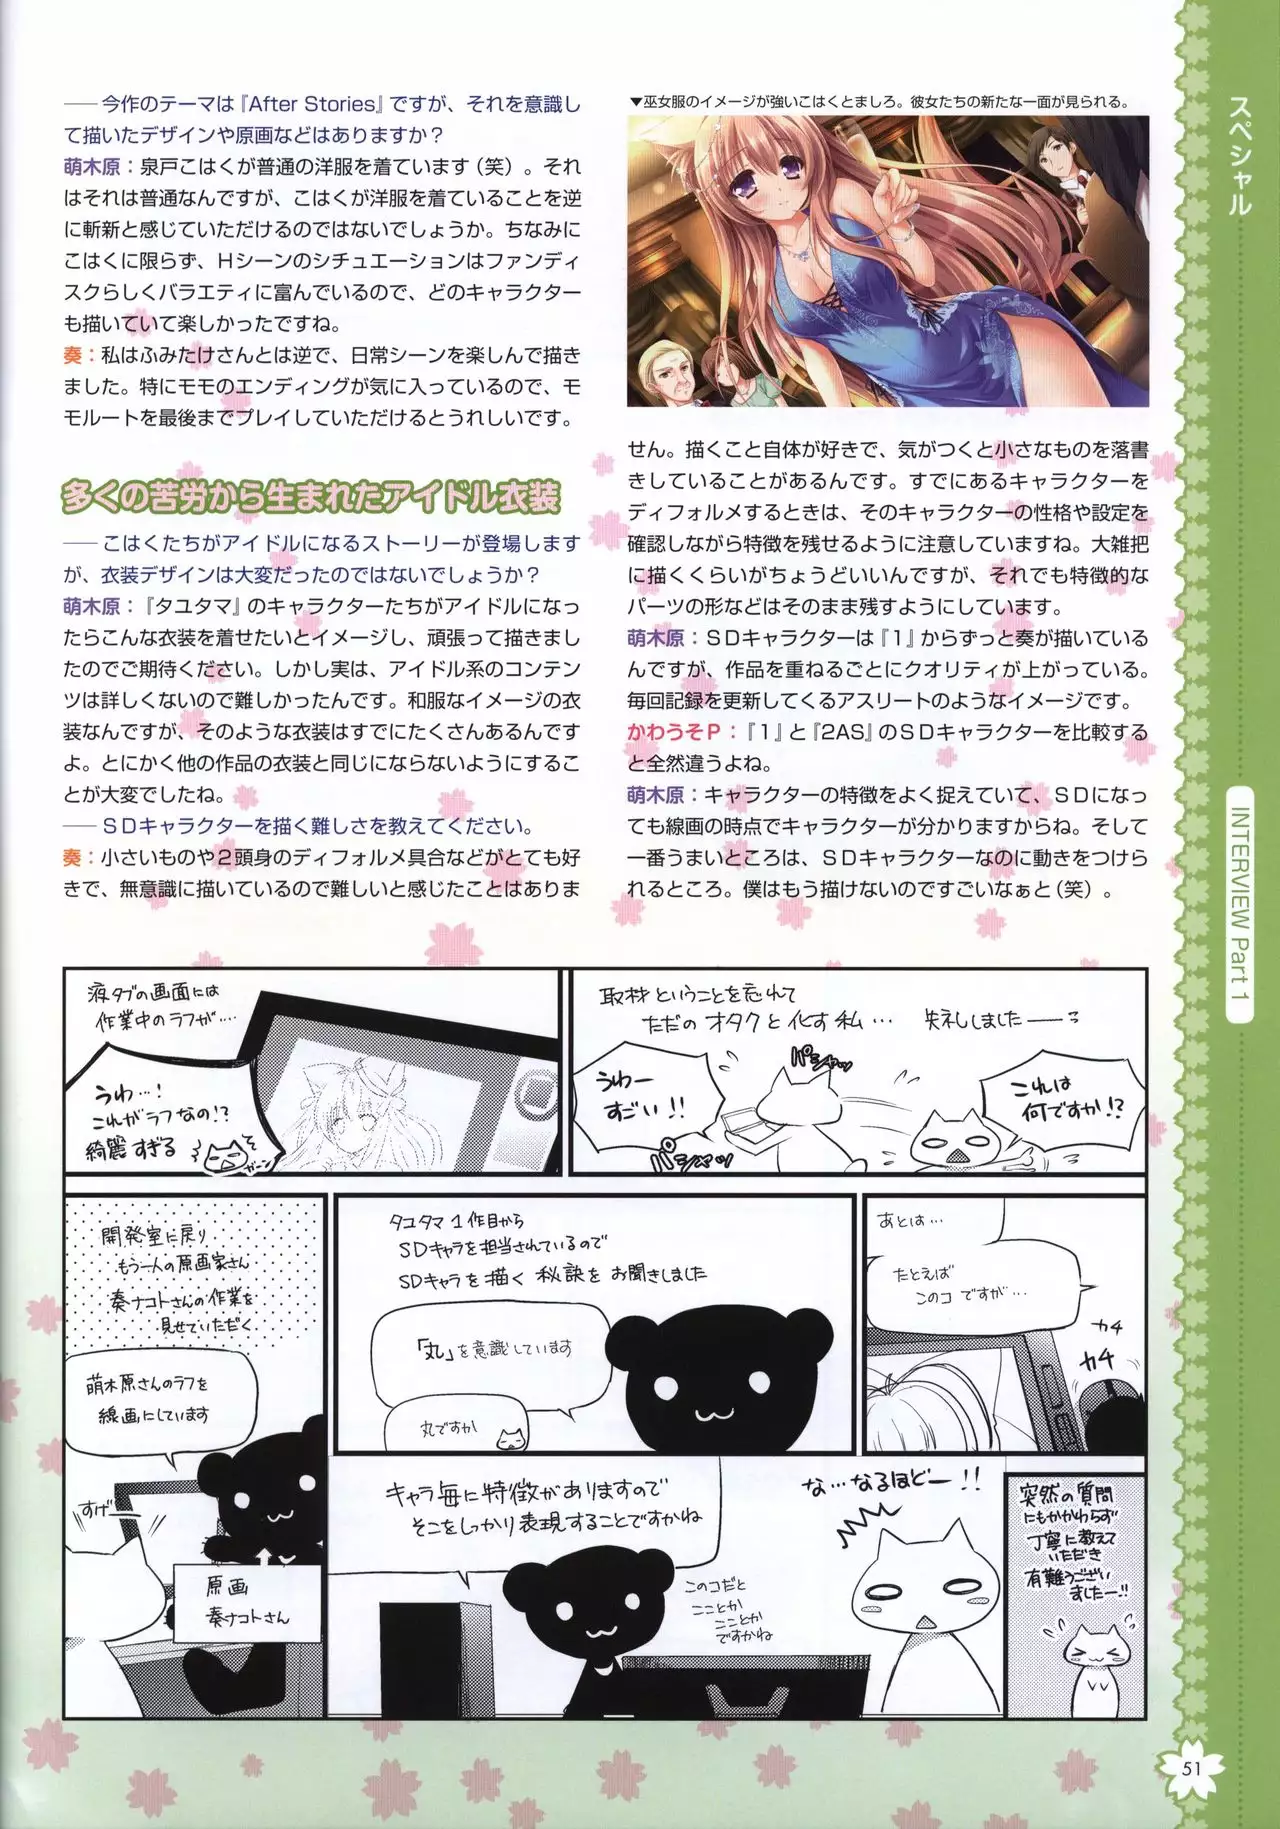 ――今作のテーマは『After Stories』ですが、それを意識し
て描いたデザインや原画などはありますか？
萌木原：泉戸こはくが普通の洋服を着ています（笑）。それ
はそれは普通なんですが、こはくが洋服を着ていることを逆
に斬新と感じていただけるのではないでしょうか。ちなみに
こはくに限らず、Ｈシーンのシチュエーションはファンディ
スクらしくバラエティに富んでいるので、どのキャラクター
も描いていて楽しかったですね。
奏：私はふみたけさんとは逆で、日常シーンを楽しんで描き
ました。特にモモのエンディングが気に入っているので、モ
モルートを最後までプレイしていただけるとうれしいです。
多くの苦労から生まれたアイドル衣装
――こはくたちがアイドルになるストーリーが登場します
が、衣装デザインは大変だったのではないでしょうか？
萌木原：『タユタマ』のキャラクターたちがアイドルになっ
たらこんな衣装を着せたいとイメージし、頑張って描きまし
たのでご期待ください。しかし実は、アイドル系のコンテン
ツは詳しくないので難しかったんです。和服なイメージの衣
装なんですが、そのような衣装はすでにたくさんあるんです
よ。とにかく他の作品の衣装と同じにならないようにするこ
とが大変でしたね。
――ＳＤキャラクターを描く難しさを教えてください。
奏：小さいものや２頭身のディフォルメ具合などがとても好
きで、無意識に描いているので難しいと感じたことはありま
▼巫女服のイメージが強いこはくとましろ。彼女たちの新たな一面が見られる。
せん。描くこと自体が好きで、気がつくと小さなものを落書
きしていることがあるんです。すでにあるキャラクターを
ディフォルメするときは、そのキャラクターの性格や設定を
確認しながら特徴を残せるように注意していますね。大雑把
に描くくらいがちょうどいいんですが、それでも特徴的な
パーツの形などはそのまま残すようにしています。
萌木原：ＳＤキャラクターは『１』からずっと奏が描いている
んですが、作品を重ねるごとにクオリティが上がっている。
毎回記録を更新してくるアスリートのようなイメージです。
かわうそＰ：『１』と『2AS』のＳＤキャラクターを比較する
と全然違うよね。
萌木原：キャラクターの特徴をよく捉えていて、ＳＤになっ
ても線画の時点でキャラクターが分かりますからね。そして
一番うまいところは、ＳＤキャラクターなのに動きをつけら
れるところ。僕はもう描けないのですごいなぁと（笑）。
スペシャル
INTERVIEW Part 1
取材ということを忘れて
ただのオタクと化す私…
失礼しましたーー
これは
何ですか!?
パシャッ
うわー
すごい!!
パシャッ
液タブの画面には
作業中のラフが…
うわ…！
これがラフなの!?
綺麗すぎる
ガーン
あとは…
たとえば
このコですが…
カチ
カチ
タユタマ１作目から
ＳＤキャラを担当されているので
ＳＤキャラを描く秘訣をお聞きしました
「丸」を意識しています
丸ですか
開発室に戻り
もう一人の原画家さん
奏ナコトさんの作業を
見せていただく
萌木原さんのラフを
線画にしています
すげーー
原画
奏ナコトさん
キャラ毎に特徴がありますので
そこをしっかり表現することですかね
このコだと
こことか
こことか
ですかね
な…なるほどー!!
突然の質問
にもかかわらず
丁寧に教えて
いただき
有難うござい
ましたー!!
51